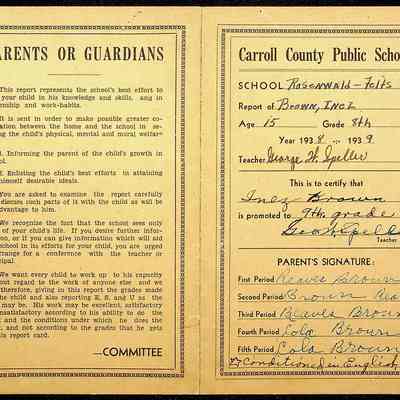 PARENTS OR GUARDIANS
This report represents the school's best effort to
your child in his knowledge and skills, and in
nship and work-habits.
It is sent in order to make possible greater co-
ation between the home and the school in se-
ng the child's physical, mental and moral welfar-
Informing the parent of the child's growth in
ol.
Enlisting the child's best efforts in attaining
himself desirable ideals.
You are asked to examine the report carefully
discuss such parts of it with the child as will be
dvantage to him.
We recognize the fact that the school sees only
of your child's life. If you desire further infor-
on, or if you can give information which will aid
school in its efforts for your child, you are urged
rrange for a conference with the teacher or
cipal.
We want every child to work up to his capacity
out regard to the work of anyone else and we
therefore, giving in this report the grades made
the child and also reporting E, S, and U as the
may be. His work may be excellent, satisfactory
nsatisfactory according to his ability to do the
and the conditions under which he does the
, and not according to the grades that he gets
his report card.
...COMMITTEE
Carroll County Public Schoo
SCHOOL Rosenwald-Felts
Report of Brown, Inez
Age 15 Grade 8th
Year 1938 - 1939
Teacher George W. Speller
This is to certify that
Inez Brown
is promoted to 9th grade
Geo Spell
Teacher
PARENT'S SIGNATURE:
First Period Reaves Brown
Second Period Brown Rea
Third Period Reaves Brown
Fourth Period Lola Brown
Fifth Period Lola Brown
Conditioned in English